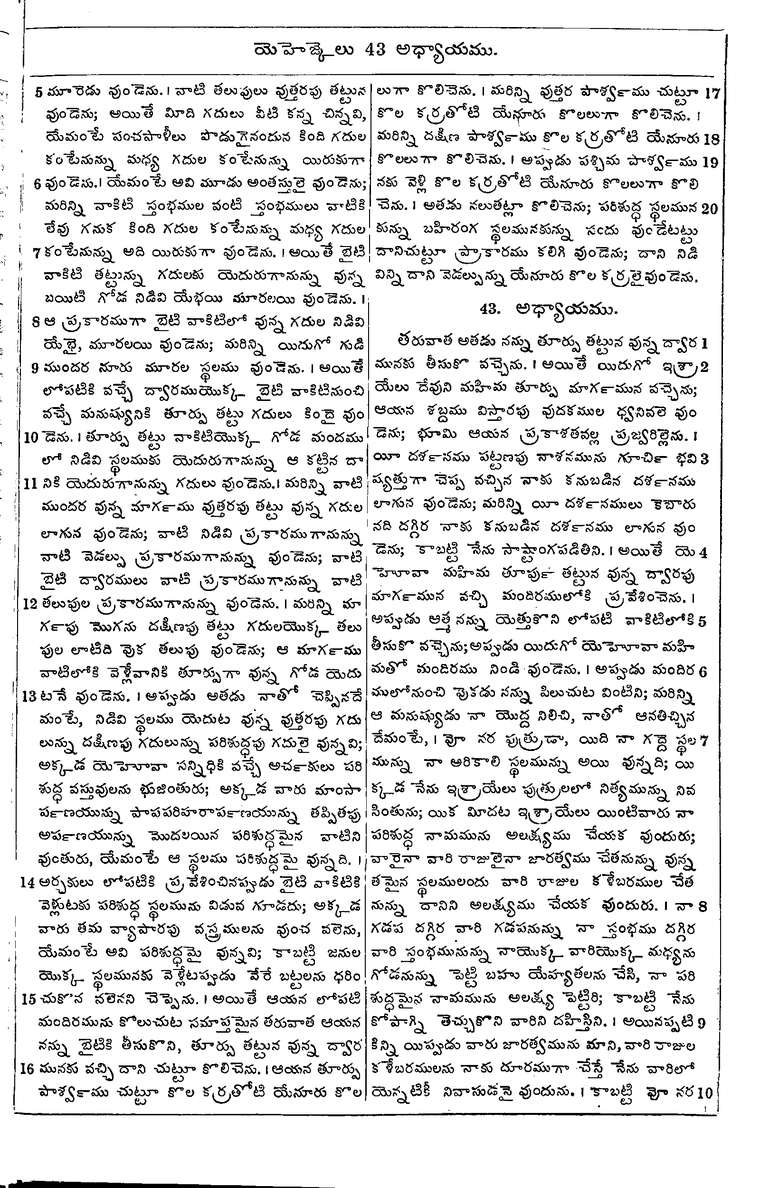 యెహెజ్కేలు 43 అధ్యాయము.
5 మూరెడు వుండెను. । వాటి తలుపులు వుత్తరపు తట్టున
వుండెను; అయితే మీది గదులు వీటి కన్న చిన్నవి,
యేమంటే పంచపాళీలు పొడుగైనందున కింది గదుల
కంటేనున్ను మధ్య గదుల కంటేనున్ను యిరుకుగా
6 వుండెను. । యేమంటే అవి మూడు అంతస్తులై వుండెను;
మరిన్ని వాకిటి స్తంభముల వంటి స్తంభములు వాటికి
లేవు గనుక కింది గదుల కంటేనున్ను మధ్య గదుల
7 కంటేనున్ను అది యిరుకుగా వుండెను. । అయితే బైటి
వాకిటి తట్టున్న గదులకు యెదురుగానున్ను వున్న
బయిటి గోడ నిడివి యేభయి మూరలయి వుండెను. ।
8 ఆ ప్రకారముగా బైటి వాకిటిలో వున్న గదుల నిడివి
యేభై, మూరలయి వుండెను; మరిన్ని యిదుగో గుడి
9 ముందర నూరు మూరల స్థలము వుండెను. । అయితే
లోపటికి వచ్చే ద్వారముయొక్క బైటి వాకిటినుంచి
వచ్చే మనుష్యునికి తూర్పు తట్టు గదులు కిందై వుం
10 డెను. । తూర్పు తట్టు వాకిటియొక్క గోడ మందము
లో నిడివి స్థలముకు యెదురుగానున్ను ఆ కట్టిన దా
11 నికి యెదురుగానున్ను గదులు వుండెను. । మరిన్ని వాటి
ముందర వున్న మార్గము వుత్తరపు తట్టు వున్న గదుల
లాగున వుండెను; వాటి నిడివి ప్రకారముగానున్ను
వాటి వెడల్పు ప్రకారముగానున్ను వుండెను; వాటి
బైటి ద్వారములు వాటి ప్రకారముగానున్ను వాటి
12 తలుపుల ప్రకారముగానున్ను వుండెను. । మరిన్ని మా
ర్గపు మొగను దక్షిణపు తట్టు గదులయొక్క తలు
పుల లాటిది వొక తలుపు వుండెను; ఆ మార్గము
వాటిలోకి వెళ్లేవానికి తూర్పుగా వున్న గోడ యెదు
13 టనే వుండెను. । అప్పుడు అతడు నాతో చెప్పినదే
మంటే, నిడివి స్థలము యెదుట వున్న వుత్తరపు గదు
లున్ను దక్షిణపు గదులున్ను పరిశుద్ధపు గదులై వున్నవి;
అక్కడ యెహోవా సన్నిధికి వచ్చే అర్చకులు పరి
శుద్ధ వస్తువులను భుజింతురు; అక్కడ వారు మాంసా
ర్పణయున్ను పాపపరిహారార్పణయున్ను తప్పితపు
అర్పణయున్ను మొదలయిన పరిశుద్ధమైన వాటిని
వుంతురు, యేమంటే ఆ స్థలము పరిశుద్ధమై వున్నది. ।
14 అర్చకులు లోపటికి ప్రవేశించినప్పుడు బైటి వాకిటికి
వెళ్లుటకు పరిశుద్ధ స్థలమును విడువ గూడదు; అక్కడ
వారు తమ వ్యాపారపు వస్త్రములను వుంచ వలెను,
యేమంటే అవి పరిశుద్ధమై వున్నవి; కాబట్టి జనుల
యొక్క స్థలమునకు వెళ్లేటప్పుడు వేరే బట్టలను ధరిం
15 చుకొన వలెనని చెప్పెను. । అయితే ఆయన లోపటి
మందిరమును కొలుచుట సమాప్తమైన తరువాత ఆయన
నన్ను బైటికి తీసుకొని, తూర్పు తట్టున వున్న ద్వార
16 మునకు వచ్చి దాని చుట్టూ కొలిచెను. । ఆయన తూర్పు
పార్శ్వము చుట్టూ కొల కర్రతోటి యేనూరు కొల
లుగా కొలిచెను. । మరిన్ని వుత్తర పార్శ్వము చుట్టూ 17
కొల కర్రతోటి యేనూరు కొలలుగా కొలిచెను. ।
మరిన్ని దక్షిణ పార్శ్వము కొల కర్రతోటి యేనూరు 18
కొలలుగా కొలిచెను. । అప్పుడు పశ్చిమ పార్శ్వము 19
నకు వెళ్లి కొల కర్రతోటి యేనూరు కొలలుగా కొలి
చెను. । అతడు నలుతట్లా కొలిచెను; పరిశుద్ధ స్థలమున 20
కున్ను బహిరంగ స్థలమునకున్ను సందు వుండేటట్టు
దానిచుట్టూ ప్రాకారము కలిగి వుండెను; దాని నిడి
విన్ని దాని వెడల్పున్ను యేనూరు కొల కర్రలైవుండెను.
43. అధ్యాయము.
తరువాత అతడు నన్ను తూర్పు తట్టున వున్న ద్వార 1
మునకు తీసుకొ వచ్చెను. । అయితే యిదుగో ఇశ్రా 2
యేలు దేవుని మహిమ తూర్పు మార్గమున వచ్చెను;
ఆయన శబ్దము విస్తారపు వుదకముల ధ్వనివలె వుం
డెను; భూమి ఆయన ప్రకాశతవల్ల ప్రజ్వరిల్లెను. ।
యీ దర్శనము పట్టణపు నాశనమును గూర్చి భవి 3
ష్యత్తుగా చెప్ప వచ్చిన నాకు కనుబడిన దర్శనము
లాగున వుండెను; మరిన్ని యీ దర్శనములు కెబారు
నది దగ్గిర నాకు కనుబడిన దర్శనము లాగున వుం
డెను; కాబట్టి నేను సాష్టాంగపడితిని. । అయితే యె 4
హోవా మహిమ తూర్పు తట్టున వున్న ద్వారపు
మార్గమున వచ్చి మందిరములోకి ప్రవేశించెను. ।
అప్పుడు ఆత్మ నన్ను యెత్తుకొని లోపటి వాకిటిలోకి 5
తీసుకొ వచ్చెను; అప్పుడు యిదుగో యెహోవా మహి
మతో మందిరము నిండి వుండెను. । అప్పుడు మందిర 6
ములోనుంచి వొకడు నన్ను పిలుచుట వింటిని; మరిన్ని
ఆ మనుష్యుడు నా యొద్ద నిలిచి, నాతో ఆనతిచ్చిన
దేమంటే, । వో నర పుత్రుడా, యిది నా గద్దె స్థల 7
మున్ను నా అరికాలి స్థలమున్ను అయి వున్నది; యి
క్కడ నేను ఇశ్రాయేలు పుత్రులలో నిత్యమున్ను నివ
సింతును; యిక మీదట ఇశ్రాయేలు యింటివారు నా
పరిశుద్ధ నామమును అలక్ష్యము చేయక వుందురు;
వారైనా వారి రాజులైనా జారత్వము చేతనున్ను వున్న
తమైన స్థలములందు వారి రాజుల కళేబరముల చేత
నున్ను దానిని అలక్ష్యము చేయక వుందురు. । నా 8
గడప దగ్గిర వారి గడపనున్ను నా స్తంభము దగ్గిర
వారి స్తంభమునున్ను నాయొక్క వారియొక్క మధ్యను
గోడనున్ను పెట్టి బహు యేహ్యతలను చేసి, నా పరి
శుద్ధమైన నామమును అలక్ష్య పెట్టిరి; కాబట్టి నేను
కోపాగ్ని తెచ్చుకొని వారిని దహిస్తిని. । అయినప్పటి 9
కిన్ని యిప్పుడు వారు జారత్వమును మాని, వారి రాజుల
కళేబరములను నాకు దూరముగా చేస్తే నేను వారిలో
యెన్నటికీ నివాసుడనై వుందును. । కాబట్టి వో నర 10